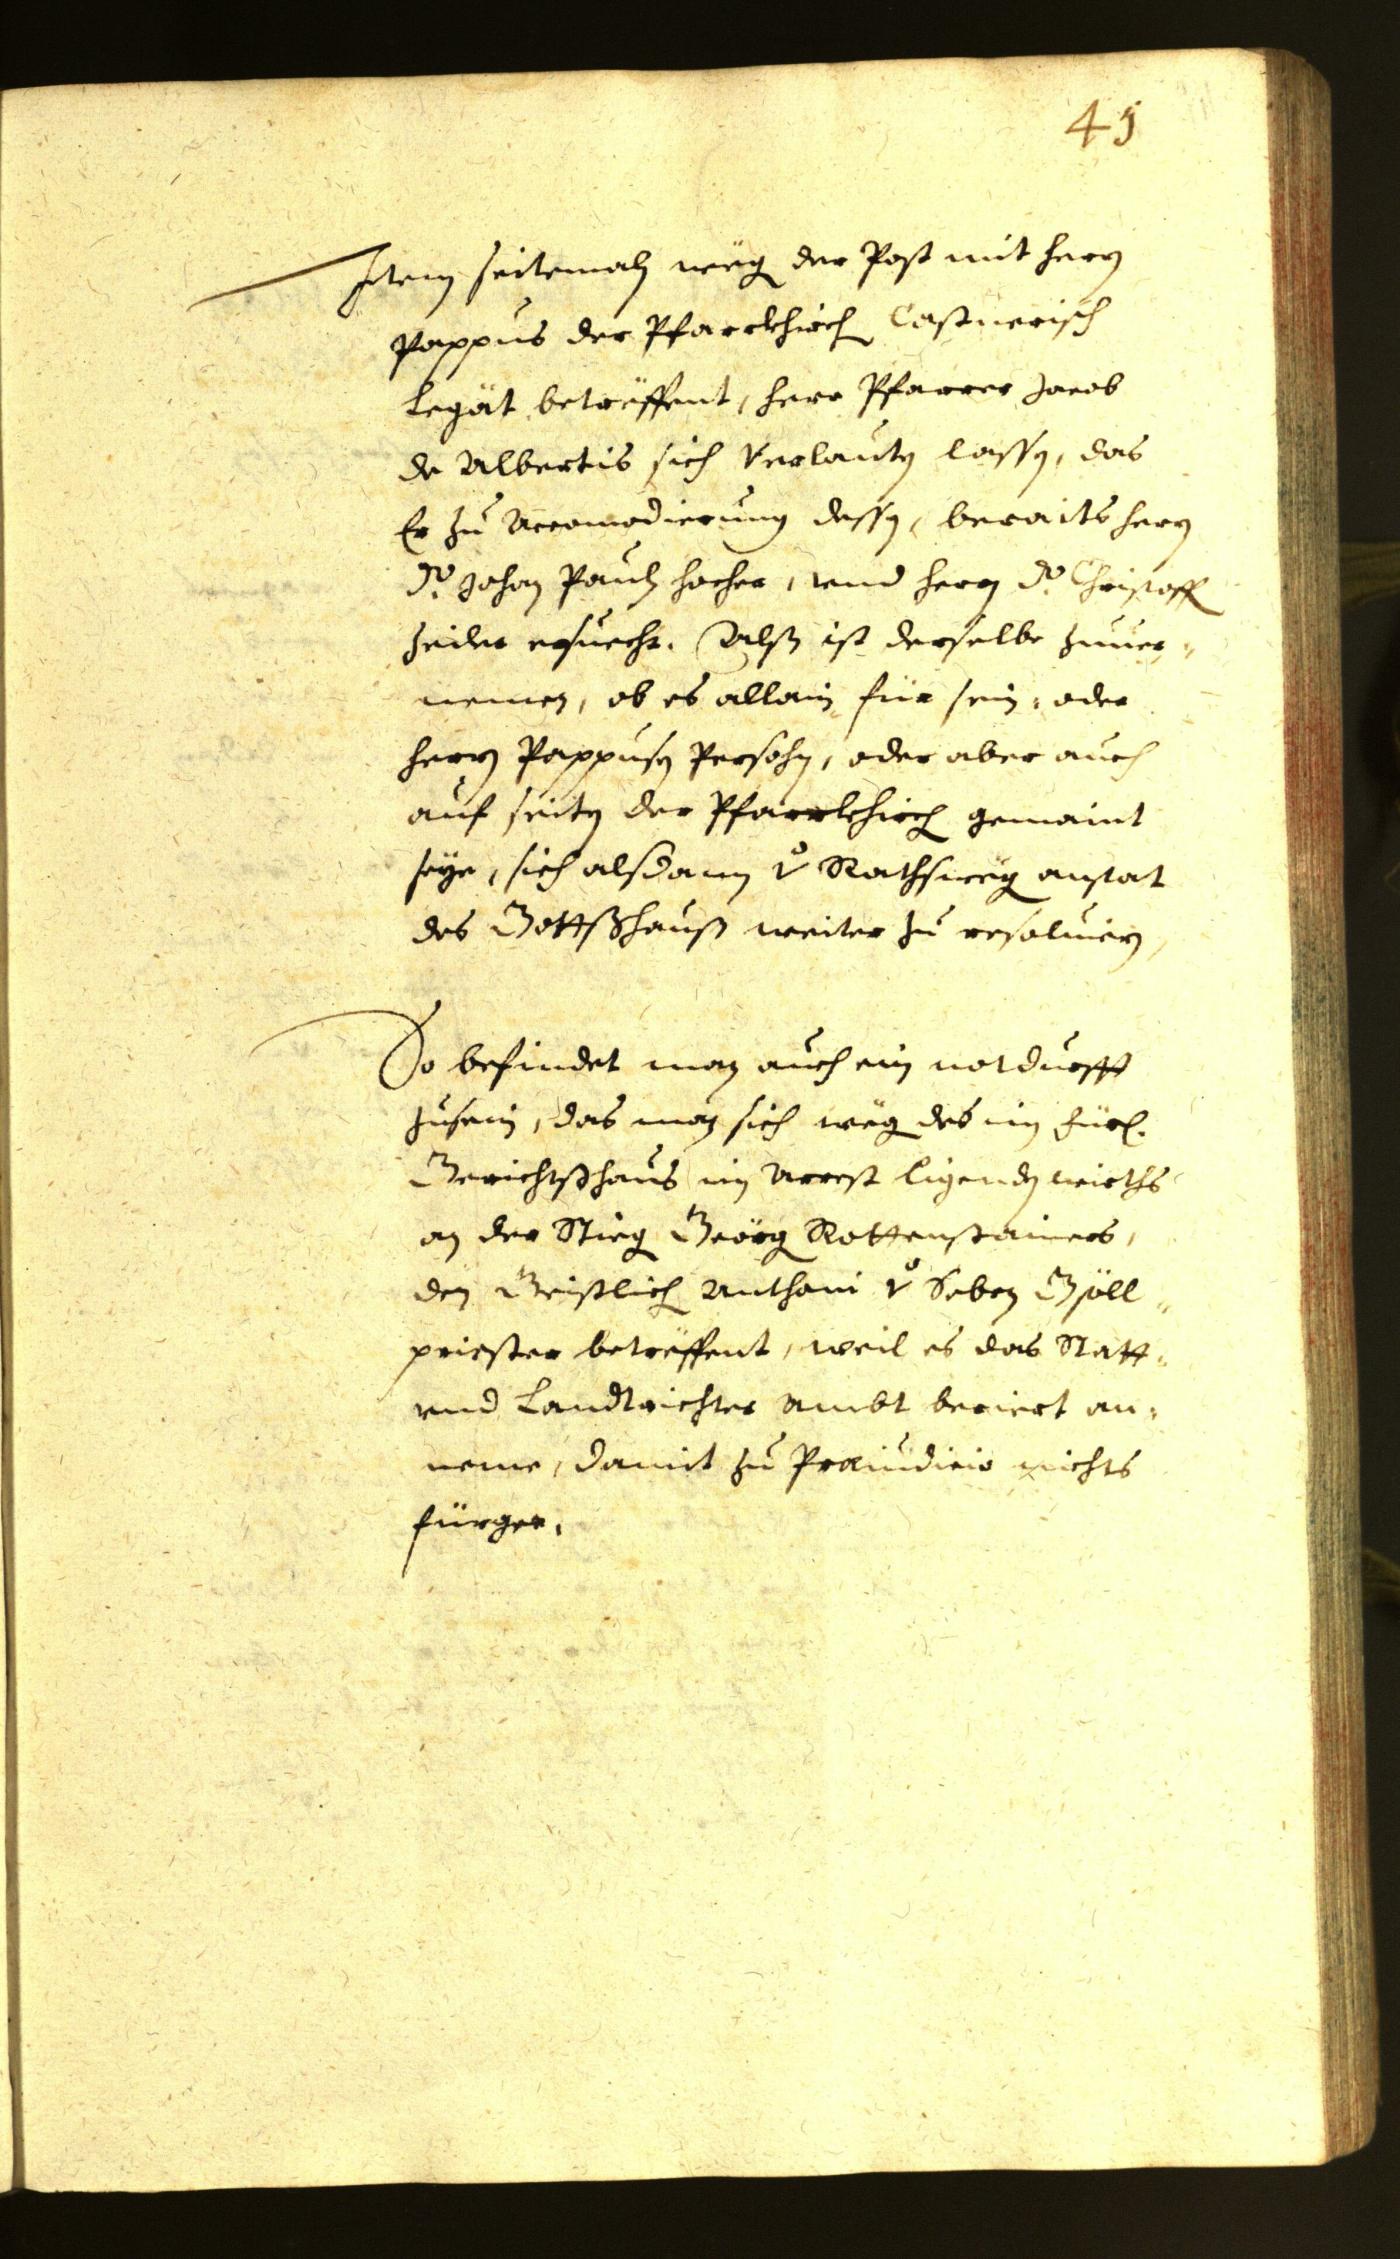 45
Item seitemaln weg der Post mit herrn
Pappus der Pfarrkhirch Castnerisch
Legat betreffent, herr Pfarrer Jacob
de Albertis sich verlauten lassen, das
Er zu Accomodierung dessen, beraits herrn
Dr. Johan Pauln hocher, vnd herrn Dr. Christoff
Zeiler ersuecht. Alß ist derselbe zuuer-
nemen, ob es allain für sein: oder
herrn Pappusen Persohn, oder aber auch
auf seiten der Pfarrkhirch gemaint
seye, sich alßdann v. Rathsweg anstat
des Gottßhauß weiter zu resoluiern,
So befindet man auch ein notdurfft
zusein, das man sich weg des im fürl.
Gerichtßhaus im Arrest ligenden wirths
an der Stieg Geörg Rottenstainers,
den Geistlich Anthoni v. Seben Gsöll
priester betreffent, weil es das Statt-
vnd Landtrichter Ambt beriert an-
neme, damit zu Praeiudicio nichts
fürgee.